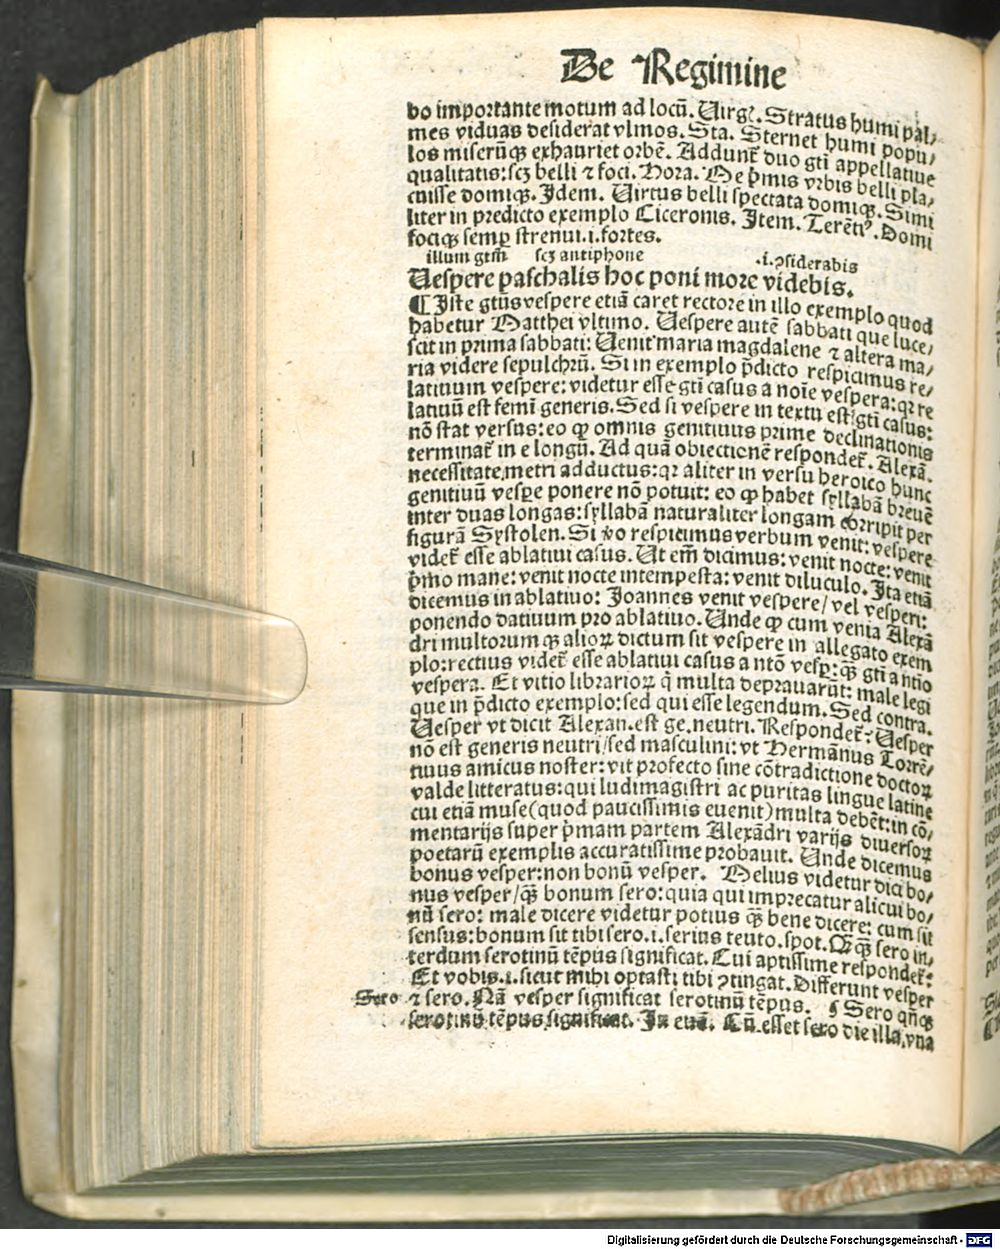 De Regimine
bo importante motum ad locū. Uirgꝰ. Stratus humi pal/
mes viduas desiderat vlmos. Sta. Sternet humi popu/
los miserūqꝫ exhauriet orbē. Addunt̄ duo gt̄i appellatiue
qualitatis: scꝫ belli ⁊ foci. Hora. Me p̄mis vrbis belli pla/
cuisse domiqꝫ. Idem. Uirtus belli spectata domiqꝫ. Simi
liter in predicto exemplo Ciceronis. Item. Terētiꝰ. Domi
fociqꝫ semꝑ strenui.i.fortes.
illum gtm̄ scꝫ antiphone .i.ꝯsiderabis
Uespere paschalis hoc poni more videbis.
¶ Iste gt̄us vespere etiā caret rectore in illo exemplo quod
habetur Matthei vltimo. Uespere autē sabbati que luce/
scit in prima sabbati: Uenit maria magdalene ⁊ altera ma/
ria videre sepulchrū. Si in exemplo p̄dicto respicimus re/
latiuum vespere: videtur esse gt̄i casus a noīe vespera: qꝛ re
latiuū est femī generis. Sed si vespere in textu est gt̄i casus:
nō stat versus: eo ꝙ omnis genitiuus prime declinationis
terminat̄ in e longū. Ad quā obiectionē respondet̄. Alexā.
necessitate metri adductus: qꝛ aliter in versu heroico hunc
genitiuū vesꝑe ponere nō potuit: eo ꝙ habet syllabā breuē
inter duas longas: syllabā naturaliter longam corripit per
figurā Systolen. Si v̄o respicimus verbum venit: vespere
videt̄ esse ablatiui casus. Ut em̄ dicimus: venit nocte: venit
p̄mo mane: venit nocte intempesta: venit diluculo. Ita etiā
dicemus in ablatiuo: Joannes venit vespere/ vel vesperi:
ponendo datiuum pro ablatiuo. Unde ꝙ cum venia Alexā
dri multorumqꝫ alioꝝ dictum sit vespere in allegato exem
plo: rectius videt̄ esse ablatiui casus a ntō vesꝑ: qꝫ̄ gt̄i a ntio
vespera. Et vitio librarioꝝ q̄ multa deprauarūt: male legi
que in p̄dicto exemplo: sed qui esse legendum. Sed contra.
Uesper vt dicit Alexan. est ge. neutri. Respondet̄: Uesper
nō est generis neutri/ sed masculini: vt Hermānus Torrē/
tinus amicus noster: vir profecto sine cōtradictione doctoꝝ
valde litteratus: qui ludimagistri ac puritas lingue latine
cui etiā muse (quod paucissimis euenit) multa debēt: in cō/
mentarijs super p̄mam partem Alexādri varijs diuersoꝝ
poetarū exemplis accuratissime probauit. Unde dicemus
bonus vesper: non bonū vesper. Melius videtur dici bo/
nus vesper/ qꝫ̄ bonum sero: quia qui imprecatur alicui bo/
nū sero: male dicere videtur potius qꝫ̄ bene dicere: cum sit
sensus: bonum sit tibi sero.i.serius teuto. spot. Qꝫ̄qꝫ̄ sero in/
terdum serotinū tēpus significat. Cui aptissime respondet̄:
Et vobis.i.sicut mihi optasti tibi ꝯtingat. Differunt vesper
Sero ⁊ sero. Nā vesper significat serotinū tēpus. ¶ Sero qn̄qꝫ
serotinū tēpus significat. In euā. Cū esset sero die illa, vna
Digitalisierung gefördert durch die Deutsche Forschungsgemeinschaft - DFG